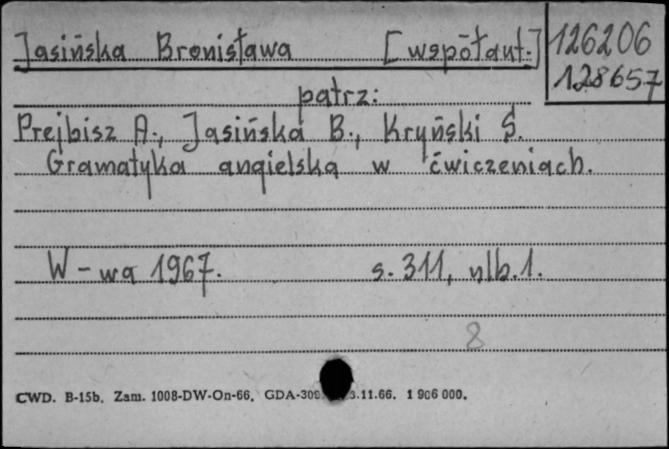 Jasińska Bronisława [współaut.] 126206
128657
patrz:
Prejbisz A., Jasińska B., Kryński S.
Gramatyka angielska w ćwiczeniach.
W-wa 1967. s. 311, nlb. 1.
8
CWD. B-15b. Zam. 1008-DW-On-66. GDA-309 .11.66. 1 906 000.